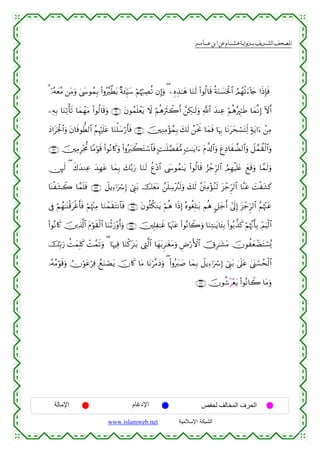 المصحف الشريف برواية هشام عن ابن عامر
فَإِذَا جَآءَتْهُمُ ٱلْحَسَنَةُ قَالُوا۟ لَنَا هَٰذِهِۦ ۖ وَإِن تُصِبْهُمْ سَيِّئَةٌ يَطَّيَّرُوا۟ بِمُوسَىٰ وَمَن مَّعَهُۥٓ ۗ
أَلَآ إِنَّمَا طَٰٓئِرُهُمْ عِندَ ٱللَّهِ وَلَٰكِنَّ أَكْثَرَهُمْ لَا يَعْلَمُونَ وَقَالُوا۟ مَهْمَا تَأْتِنَا بِهِۦ
مِنْ ءَايَةٍ لِّتَسْحَرَنَا بِهَا فَمَا نَحْنُ لَكَ بِمُؤْمِنِينَ فَأَرْسَلْنَا عَلَيْهِمُ ٱلطُّوفَانَ وَٱلْجَرَادَ
وَٱلْقُمَّلَ وَٱلضَّفَادِعَ وَٱلدَّمَ ءَايَٰتٍ مُّفَصَّلَٰتٍ فَٱسْتَكْبَرُوا۟ وَكَانُوا۟ قَوْمًا مُّجْرِمِينَ
وَلَمَّا وَقَعَ عَلَيْهِمُ ٱلرِّجْزُ قَالُوا۟ يَٰمُوسَى ٱدْعُ لَنَا رَبَّكَ بِمَا عَهِدَ عِندَكَ ۖ لَئِن
كَشَفْتَ عَنَّا ٱلرِّجْزَ لَنُؤْمِنَنَّ لَكَ وَلَنُرْسِلَنَّ مَعَكَ بَنِىٓ إِسْرَٰٓءِيلَ فَلَمَّا كَشَفْنَا
عَنْهُمُ ٱلرِّجْزَ إِلَىٰٓ أَجَلٍ هُم بَٰلِغُوهُ إِذَا هُمْ يَنكُثُونَ فَٱنتَقَمْنَا مِنْهُمْ فَأَغْرَقْنَٰهُمْ فِى
ٱلْيَمِّ بِأَنَّهُمْ كَذَّبُوا۟ بِـَٔايَٰتِنَا وَكَانُوا۟ عَنْهَا غَٰفِلِينَ وَأَوْرَثْنَا ٱلْقَوْمَ ٱلَّذِينَ كَانُوا۟
يُسْتَضْعَفُونَ مَشَٰرِقَ ٱلْأَرْضِ وَمَغَٰرِبَهَا ٱلَّتِى بَٰرَكْنَا فِيهَا ۖ وَتَمَّتْ كَلِمَتُ رَبِّكَ
ٱلْحُسْنَىٰ عَلَىٰ بَنِىٓ إِسْرَٰٓءِيلَ بِمَا صَبَرُوا۟ ۖ وَدَمَّرْنَا مَا كَانَ يَصْنَعُ فِرْعَوْنُ وَقَوْمُهُۥ
وَمَا كَانُوا۟ يَعْرُشُونَ
الحرف المخالف لحفص الإدغام الإمالة
الشبكة الإسلامية www.islamweb.net